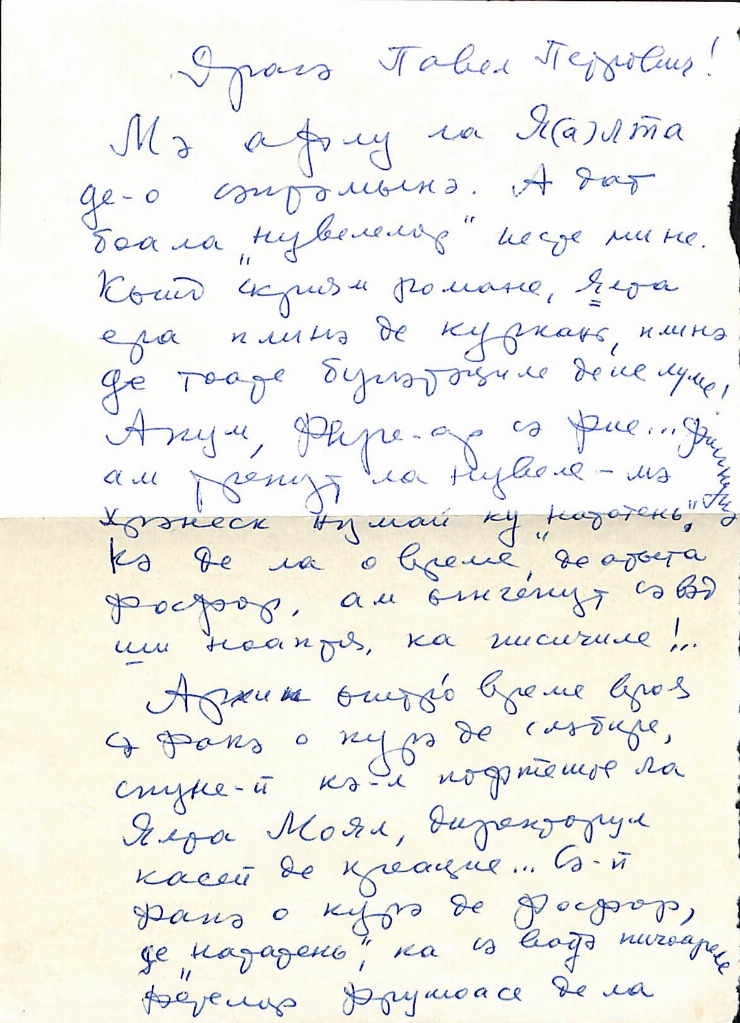 Драгэ Павел Петрович!
Мэ афлу ла Я(а)лта
де-о сэптэмынэ. А дат
боала „нувелелор" песте мине.
Кынд скриям романе, Ялта
ера плинэ де куркань, плинэ
де тоате бунэтэциле депе луме!
Акум, фире-ар сэ фие... фиindкэ
ам трекут ла нувеле – мэ
хрэнеск нумай ку „нототень",
кэ де ла о време, де атыта
фосфор, ам ынчепут сэ вэд
ши ноаптя, ка писичиле!..
Архип ынтр'о време вроя
сэ факэ о курэ де слэбире,
спуне-й кэ-л пофтеште ла
Ялта Моял, директорул
касей де креацие... Сэ-й
факэ о курэ де фосфор,
де „нототень", ка сэ вадэ пичоареле
фетелор фрумоасе де ла